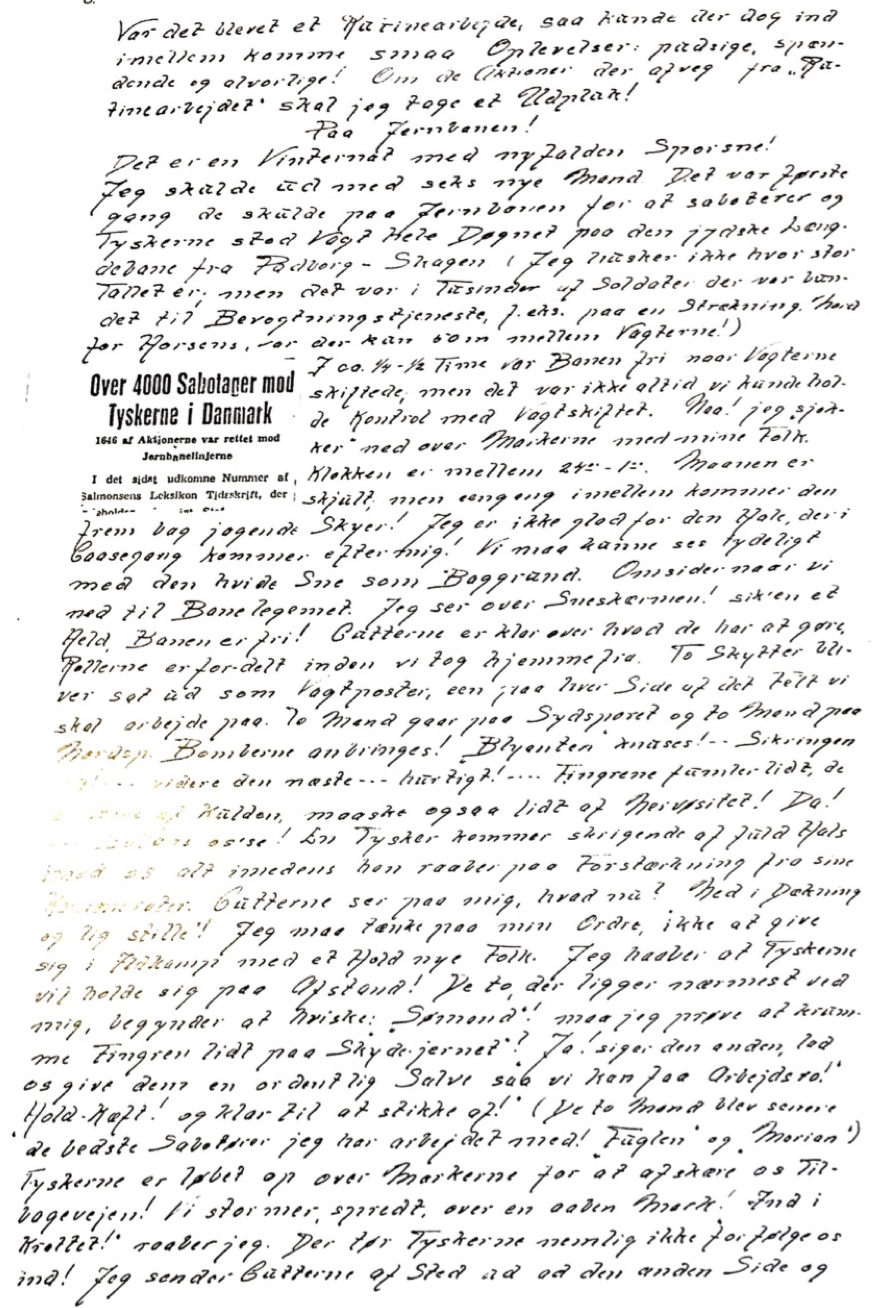 Var det blevet et Rutinearbejde, saa kunde der dog ind
imellem komme smaa Oplevelser: pudsige, spæn-
dende og alvorlige! Om de Aktioner der afveg fra „Ru-
tinearbejdet" skal jeg tage et Udpluk!
Paa Jernbanen!
Det er en Vinternat med nyfalden Sporsne!
Jeg skulde ud med seks nye Mand. Det var første
gang de skulde paa Jernbanen for at saboterer og
Tyskerne stod Vagt hele Døgnet paa den jydske Læng-
debane fra Padborg - Skagen ( Jeg husker ikke hvor stor
Tallet er, men det var i Tusinder af Soldater der var bun-
det til Bevogtningstjeneste, f.eks. paa en Strækning, nord
for Horsens, var der kun 50m mellem Vagterne!)
I ca. 1/4 - 1/2 Time var Banen fri naar Vagterne
skiftede, men det var ikke altid vi kunde hol-
de Kontrol med Vagtskiftet. Naa! jeg „sjok-
ker" ned over Markerne med mine Folk.
Klokken er mellem 24 - 1. Maanen er
skjult, men eengang imellem kommer den
Over 4000 Sabotager mod
Tyskerne i Danmark
1646 af Aktionerne var rettet mod
Jernbanelinjerne
I det sidst udkomne Nummer af
Salmonsens Leksikon Tidsskrift, der
frem bag jagende Skyer! Jeg er ikke glad for den Hale, der i
Gaasegang kommer efter mig! Vi maa kunne ses tydeligt
med den hvide Sne som Baggrund. Omsider naar vi
ned til Banelegemet. Jeg ser over Sneskærmen! sik'en et
Held, Banen er fri! Gutterne er klar over hvad de har at gøre,
Rollerne er for-delt inden vi tog hjemmefra. To Skytter bli-
ver sat ud som Vagtposter, een paa hver Side af det Felt vi
skal arbejde paa. To Mand gaar paa Sydsporet og to Mand paa
Nordsp. Bomberne anbringes! „Blyanten" knuses! -- Sikringen
videre den næste --- hurtigt! ---- Fingrene fumler lidt, de
af Kulden, maaske ogsaa lidt af Nervøsitet! Da!
os'se! En Tysker kommer skrigende af fuld Hals
imod os alt imedens han raaber paa Forstærkning fra sine
Kammerater. Gutterne ser paa mig, hvad nu? Ned i Dækning
og lig stille! Jeg maa tænke paa min Ordre, ikke at give
sig i Ildkamp med et Hold nye Folk. Jeg haaber at Tyskerne
vil holde sig paa Afstand! De to, der ligger nærmest ved
mig, begynder at hviske: „Sømand"! maa jeg prøve at krum-
me Fingren lidt paa Skydejernet"? Ja! siger den anden, lad
os give dem en ordentlig Salve saa vi kan faa Arbejdsro!"
„Hold-Kæft! og klar til at stikke af!" (De to Mand blev senere
de bedste Sabotører jeg har arbejdet med! „Fuglen" og „Morian")
Tyskerne er løbet op over Markerne for at afskære os Til-
bagevejen! Vi stormer, spredt, over en aaben Mark! „Ind i
Krattet!" raaber jeg. Der tør Tyskerne nemlig ikke forfølge os
ind! Jeg sender Gutterne af Sted ud ad den anden Side og